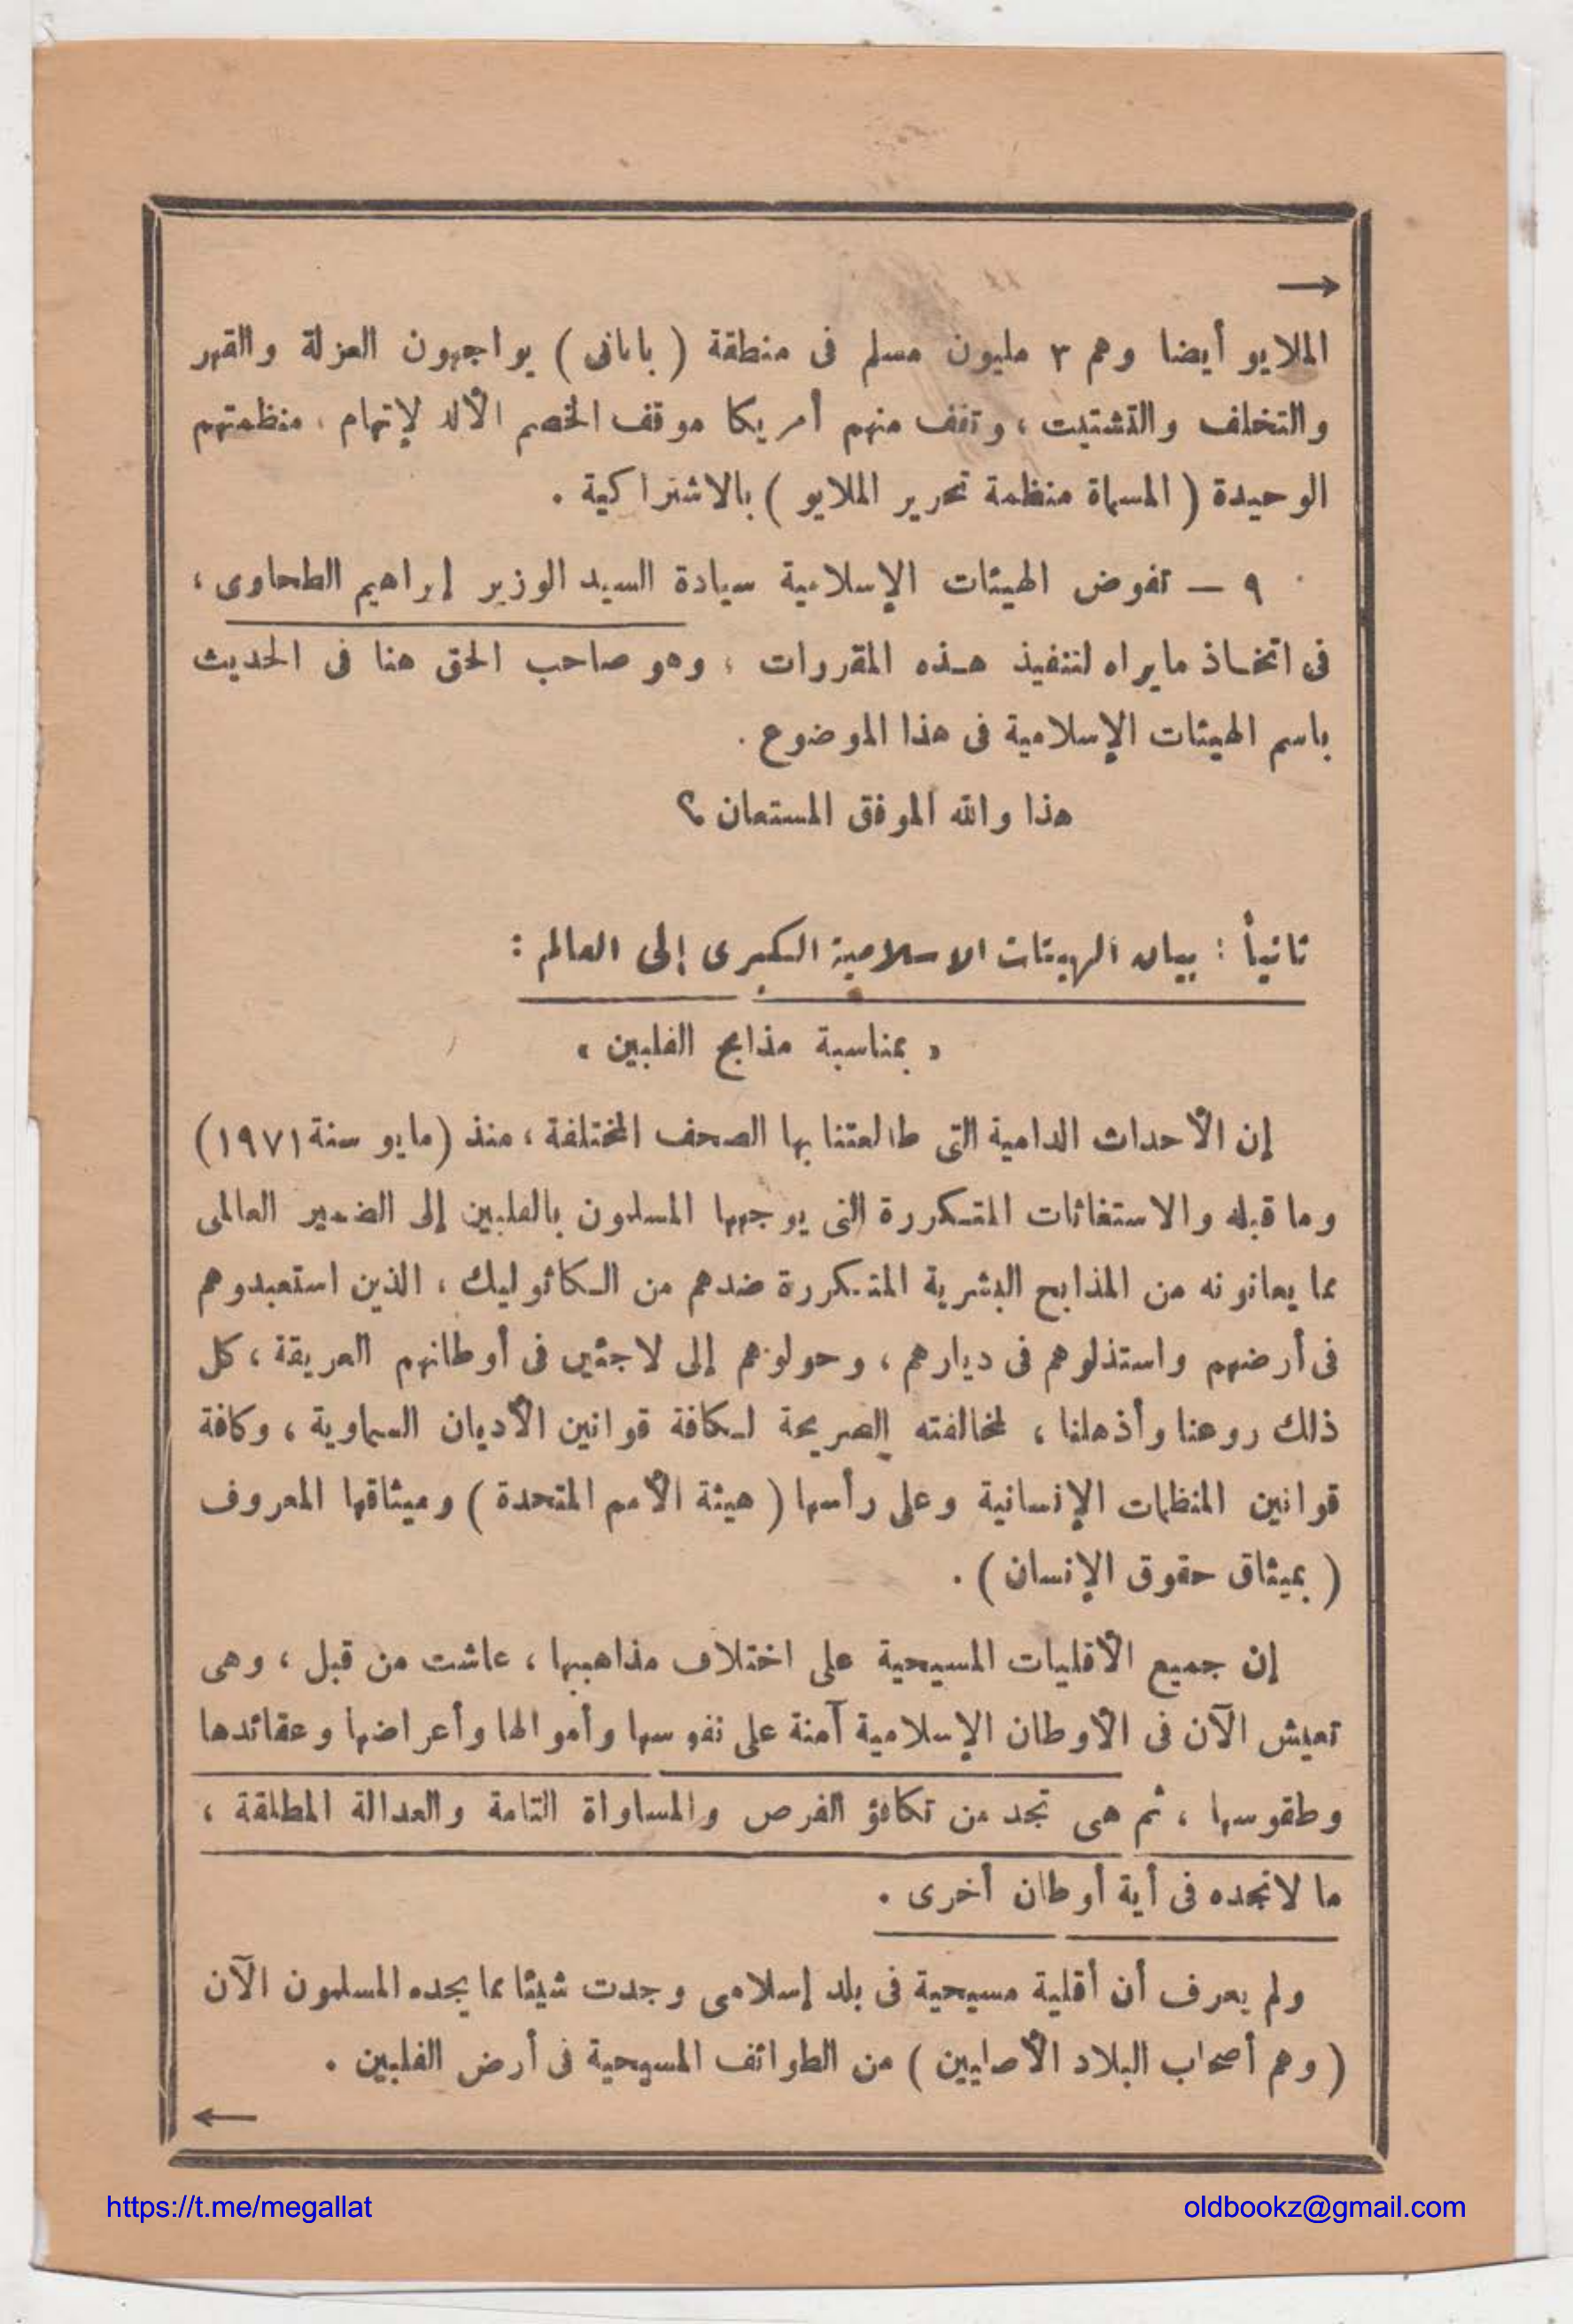 →
الملايو أيضا وهم ٣ مليون مسلم فى منطقة ( بابانى ) يواجهون العزلة والقهر
والتخلف والتشتيت ، وتقف منهم أمريكا موقف الخصم الألد لإتهام منظمتهم
الوحيدة ( المسماة منظمة تحرير الملايو ) بالاشتراكية .
٩ — تفوض الهيئات الإسلامية سيادة السيد الوزير إبراهيم الطحاوى ،
فى اتخاذ مايراه لتنفيذ هذه المقررات ، وهو صاحب الحق هنا فى الحديث
باسم الهيئات الإسلامية فى هذا الموضوع .
هذا والله الموفق المستعان ؟
ثانياً : بيان الهيئات الاسلامية الكبرى إلى العالم :
« بمناسبة مذابح الفلبين »
إن الأحداث الدامية التى طالعتنا بها الصحف المختلفة ، منذ (مايو سنة ١٩٧١)
وما قبله والاستغاثات المتكررة التى يوجهها المسلمون بالفلبين إلى الضمير العالمى
مما يعانونه من المذابح البشرية المتكررة ضدهم من الكاثوليك ، الذين استعبدوهم
فى أرضهم واستذلوهم فى ديارهم ، وحولوهم إلى لاجئين فى أوطانهم العريقة ، كل
ذلك روعنا وأذهلنا ، لمخالفته الصريحة لكافة قوانين الأديان السماوية ، وكافة
قوانين المنظمات الإنسانية وعلى رأسها ( هيئة الأمم المتحدة ) وميثاقها المعروف
( بميثاق حقوق الإنسان ) .
إن جميع الأقليات المسيحية على اختلاف مذاهبها ، عاشت من قبل ، وهى
تعيش الآن فى الأوطان الإسلامية آمنة على نفوسها وأموالها وأعراضها وعقائدها
وطقوسها ، ثم هى تجد من تكافؤ الفرص والمساواة التامة والعدالة المطلقة ،
ما لاتجده فى أية أوطان أخرى .
ولم يعرف أن أقلية مسيحية فى بلد إسلامى وجدت شيئا مما يجده المسلمون الآن
( وهم أصحاب البلاد الأصليين ) من الطوائف المسيحية فى أرض الفلبين .
←
https://t.me/megallat oldbookz@gmail.com